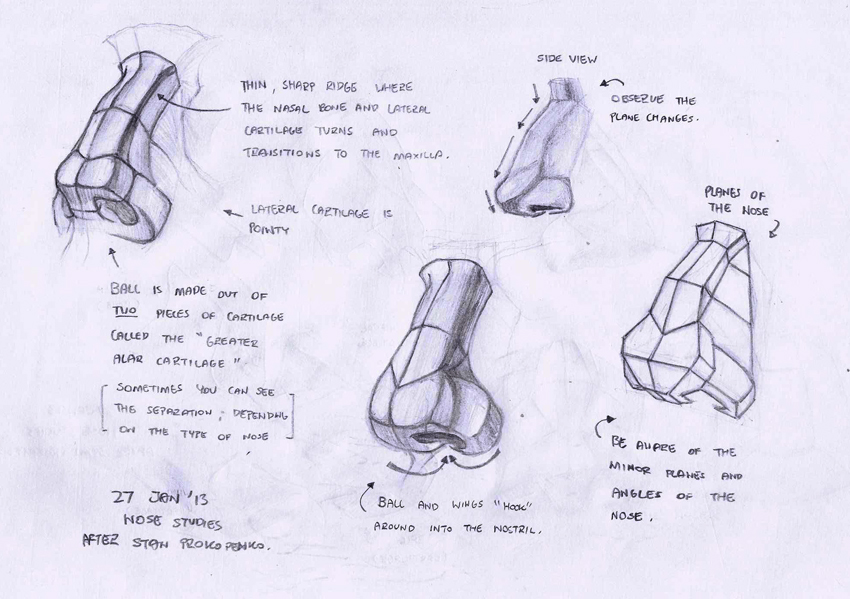 THIN, SHARP RIDGE WHERE
THE NASAL BONE AND LATERAL
CARTILAGE TURNS AND
TRANSITIONS TO THE MAXILLA.
LATERAL CARTILAGE IS
POINTY
BALL IS MADE OUT OF
TWO PIECES OF CARTILAGE
CALLED THE "GREATER
ALAR CARTILAGE"
[SOMETIMES YOU CAN SEE
THE SEPARATION, DEPENDING
ON THE TYPE OF NOSE]
27 JAN '13
NOSE STUDIES
AFTER STAN PROKOPENKO.
SIDE VIEW
OBSERVE THE
PLANE CHANGES.
PLANES OF
THE NOSE
BALL AND WINGS "HOOK"
AROUND INTO THE NOSTRIL.
BE AWARE OF THE
MINOR PLANES AND
ANGLES OF THE
NOSE.